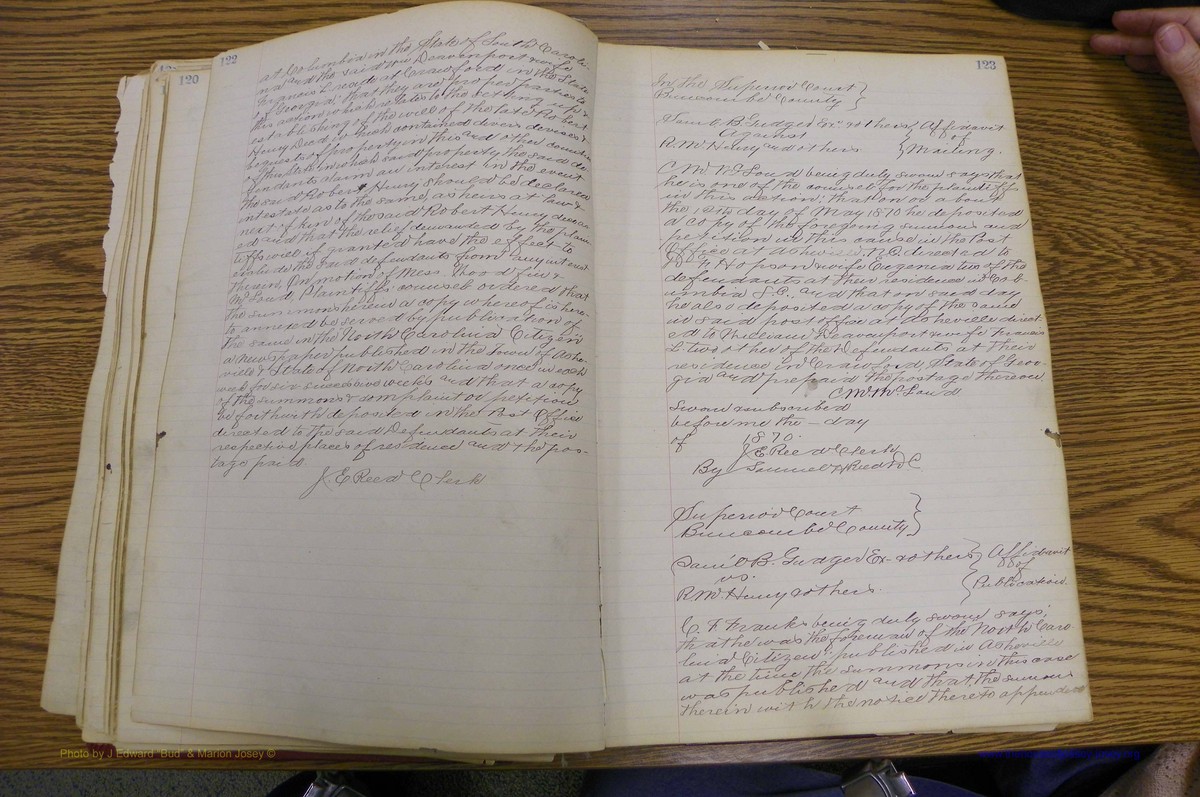 120
122
at Columbia in the State of South Caroli
na and the said Wm Deavenport & wife
reside at Crawford in the State
of Georgia, that they are proper parties to
this action which relates to the setting up &
establishing of the will of the late Robert
Henry Decd in which contained divers devises &
bequests of property in this and other counties
of this State, in which said property the said de
fendants claim an interest in the event
the said Robert Henry should be declared
intestate as to the same, as heirs at law &
next of kin of the said Robert Henry deceas
ed and that the relief demanded by the plain
tiffs will if granted have the effect to
exclude the said defendants from any interest
therein. On motion of Mess.
McLoud, Plaintiffs counsel ordered that
the summons herein a copy whereof is here-
to annexed be served by publication of
the same in the North Carolina Citizen
a newspaper published in the Town of Ashe-
ville & State of North Carolina once in each
week for six successive weeks and that a copy
of the summons & complaint or petition
be forthwith deposited in the Post Office
directed to the said Defendants at their
respective places of residence and the pos-
tage paid
J. E Reed Clerk
123
In the Superior Court }
Buncombe County }
Saml. B. Gudger Exr. & others } Affidavit
Against } of
R. M. Henry and others } Mailing.
C. M. McLoud being duly sworn says that
he is one of the counsel for the plaintiffs
in this action; that on or about
the 12th day of May 1870 he deposited
a copy of the foregoing summons and
petition in this cause in the Post
Office at Asheville N. C. directed to
Hopson & wife Eugenia two of the
defendants at their residence in Col-
umbia S. C. and that on said day
he also deposited a copy of the same
in said post office at Asheville direct-
ed to William Deavenport & wife
L two others of the Defendants at their
residence in Crawford, State of Geor-
gia and prepaid the postage thereon.
C. M. McLoud
Sworn & subscribed
before me the — day
of 1870.
J. E Reed Clerk
By Samuel Reed D C
Superior Court }
Buncombe County }
Saml. B. Gudger Ex. & others } Affidavit
vs. } of
R. M. Henry & others. } Publication.
C. F. Franks being duly sworn says;
that he was the foreman of the "North Caro-
lina Citizen" published in Asheville
at the time the summons in this case
was published and that the summons
therein with the notice thereto appended
Photo by J Edward "Bud" & Marion Josey ©